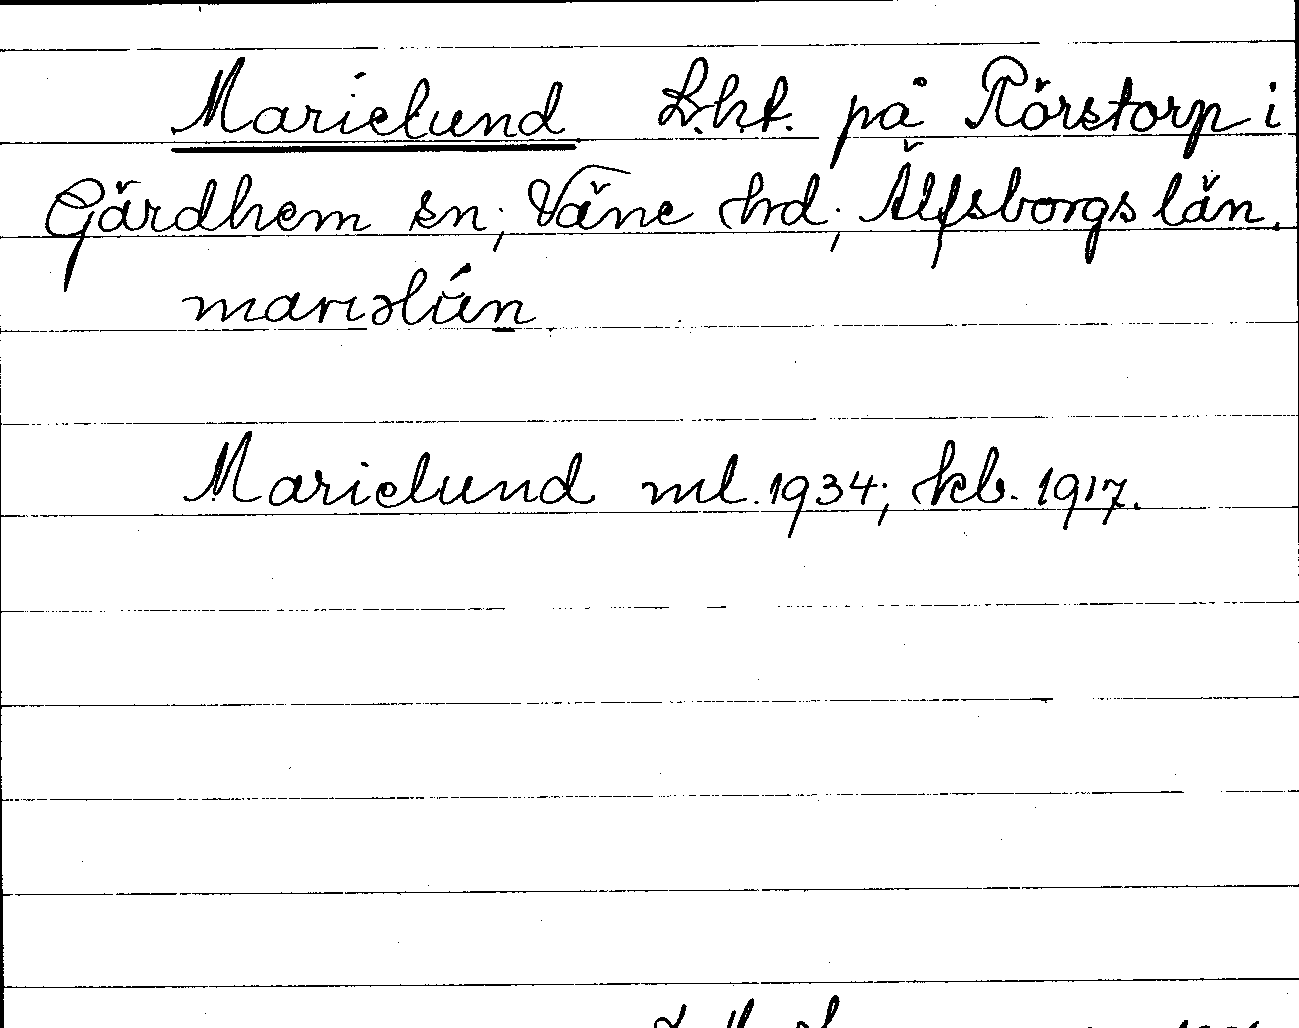 Marielund L.ht. på Rörstorp i
Gärdhem sn; Väne hd; Älfsborgs län.
marıəlún
Marielund ml. 1934; kb. 1917.